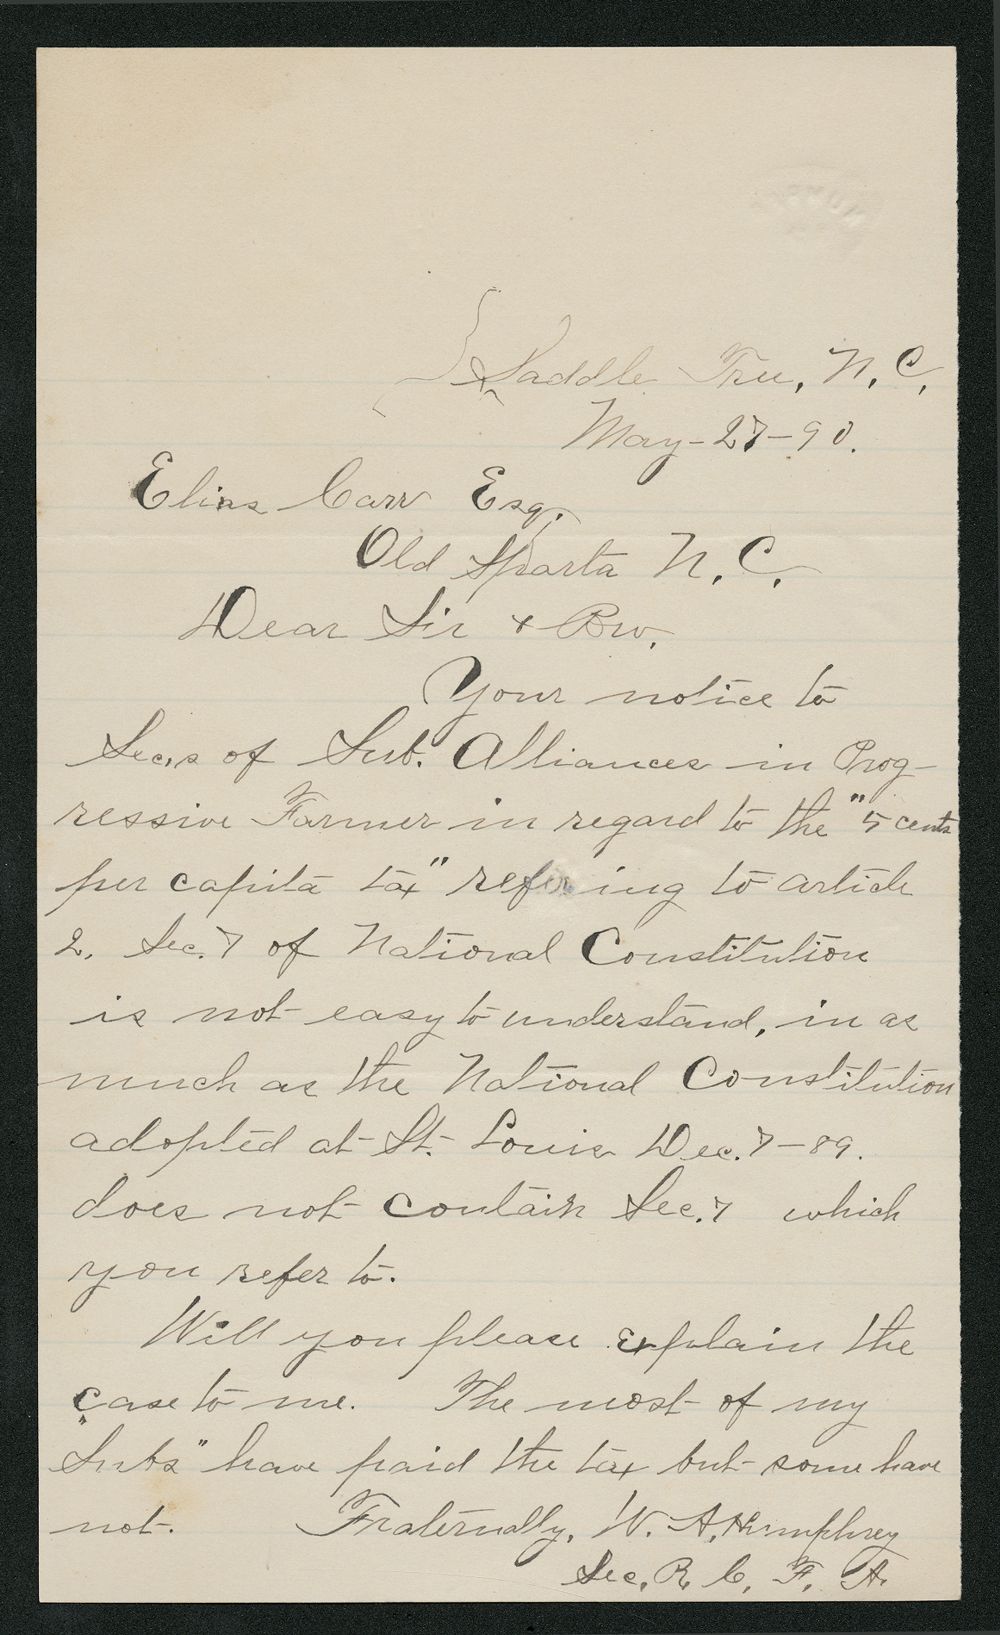 Saddle Tree, N. C.
May-27-90.
Elias Carr Esq.
Old Sparta N. C.
Dear Sir & Bro.
Your notice to
Sec,s of Sub. Alliances in Prog-
ressive Farmer in regard to the "5 cents
per capita tax" refering to article
2. Sec. 7 of National Constitution
is not easy to understand, in as
much as the National Constitution
adopted at St. Louis Dec. 7-89.
does not contain Sec. 7 which
you refer to.
Will you please explain the
case to me. The most of my
"Subs" have paid the tax but some have
not. Fraternally, W. A. Humphrey
Sec. R. C. F. A.